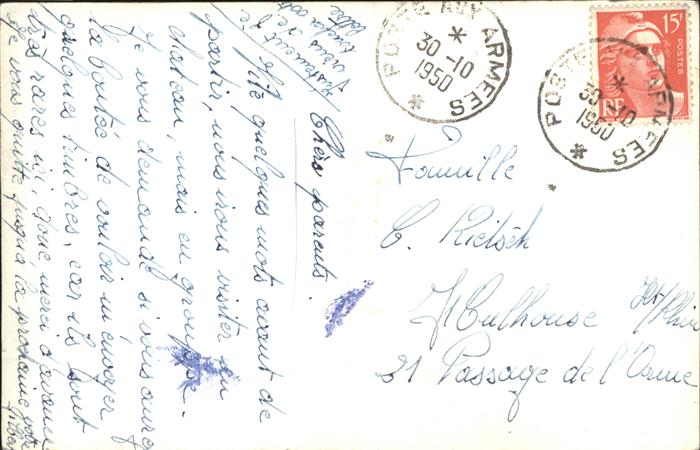 Chers parents.
Vite quelques mots avant de
partir, nous irons visiter un
chateau, mais en grouppe.
Je vous demande si vous aurez
la bontée de vouloir m'envoier
quelques timbres, car ils sont
très rares ici, donc merci d'avance
Je vous quitte jusqu'à la prochaine votre
POSTE AUX ARMEES
30-10
1950
POSTE AUX ARMEES
30-10
1950
15F
POSTES
RF
Famille
C. Rietsch
Mulhouse Ht/Rhin
21 Passage de l'Orme